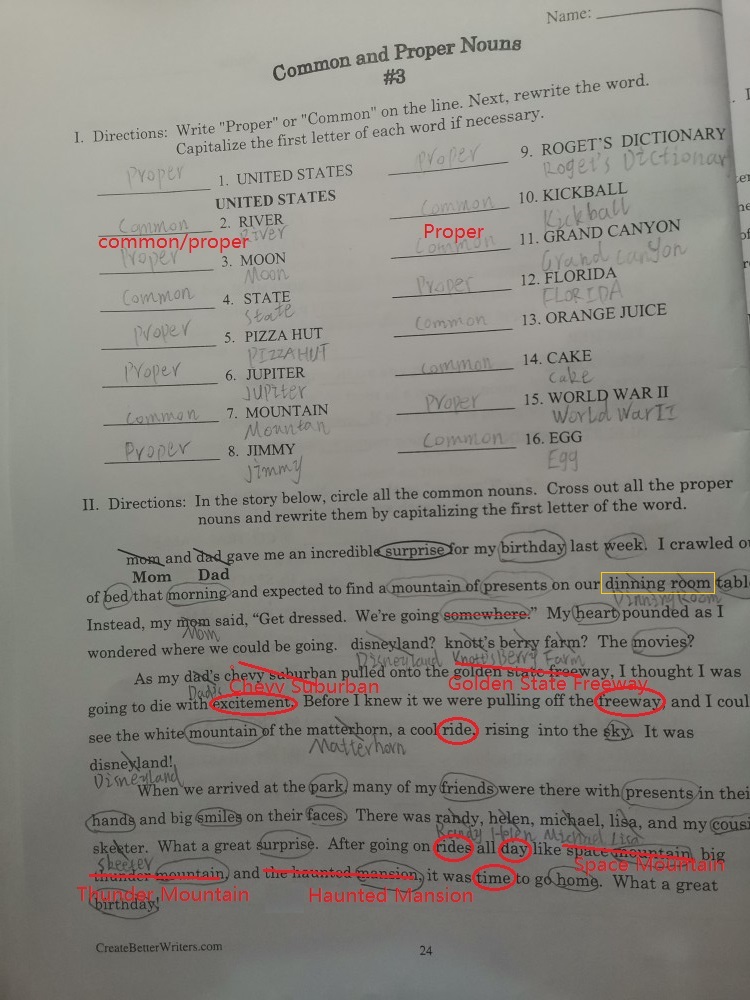 Name:
Common and Proper Nouns
#3
I. Directions: Write "Proper" or "Common" on the line. Next, rewrite the word.
Capitalize the first letter of each word if necessary.
Proper 1. UNITED STATES
UNITED STATES
Common 2. RIVER
common/proper River
Proper 3. MOON
Moon
Common 4. STATE
State
Proper 5. PIZZA HUT
PIZZA HUT
Proper 6. JUPITER
Jupiter
Common 7. MOUNTAIN
Mountan
Proper 8. JIMMY
Jimmy
Proper 9. ROGET'S DICTIONARY
Roget's Dictionar
Common 10. KICKBALL
Kickball
Proper
Common 11. GRAND CANYON
Grand canyon
Proper 12. FLORIDA
FLORIDA
Common 13. ORANGE JUICE
Common 14. CAKE
cake
Proper 15. WORLD WAR II
World War II
Common 16. EGG
Egg
II. Directions: In the story below, circle all the common nouns. Cross out all the proper
nouns and rewrite them by capitalizing the first letter of the word.
mom and dad gave me an incredible surprise for my birthday last week. I crawled ou
Mom Dad
of bed that morning and expected to find a mountain of presents on our dinning room tabl
Dinning Room
Instead, my mom said, "Get dressed. We're going somewhere." My heart pounded as I
Mom
wondered where we could be going. disneyland? knott's berry farm? The movies?
Disneyland Knott's Berry Farm
As my dad's chevy suburban pulled onto the golden state freeway, I thought I was
Dad's Chevy Suburban Golden State Freeway
going to die with excitement. Before I knew it we were pulling off the freeway, and I coul
see the white mountain of the matterhorn, a cool ride, rising into the sky. It was
Matterhorn
disneyland!
Disneyland
When we arrived at the park, many of my friends were there with presents in thei
hands and big smiles on their faces. There was randy, helen, michael, lisa, and my cousi
Randy Helen Michael Lisa
skeeter. What a great surprise. After going on rides all day like space mountain, big
Skeeter Space Mountain
thunder mountain, and the haunted mansion, it was time to go home. What a great
Thunder Mountain Haunted Mansion
birthday!
CreateBetterWriters.com
24